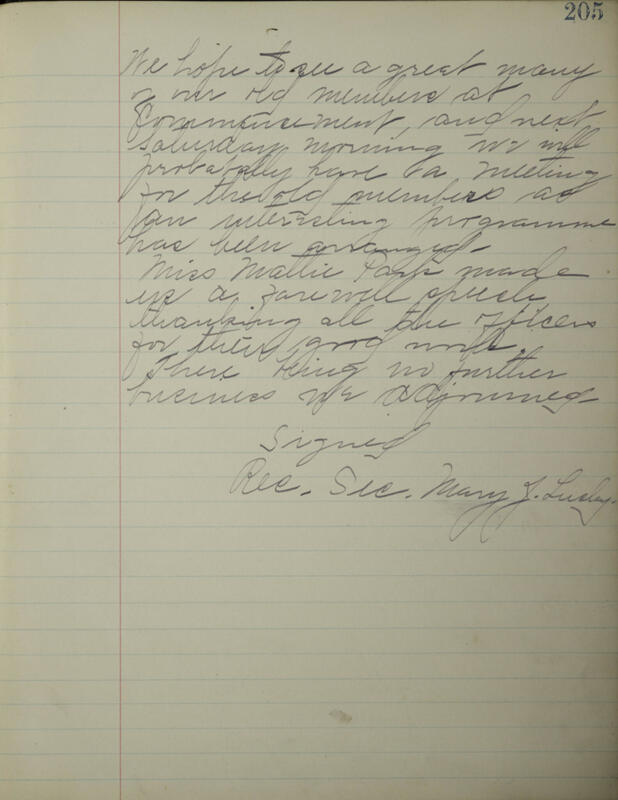 205
We hope to see a great many
of our old members at
Commencement, and next
Saturday morning we will
probably have a meeting
for the old members as
an interesting programme
has been arranged.
Miss Mattie made
us a farewell speech
thanking all the officers
for their good work.
There being no further
business we adjourned
Signed
Rec. Sec. Mary